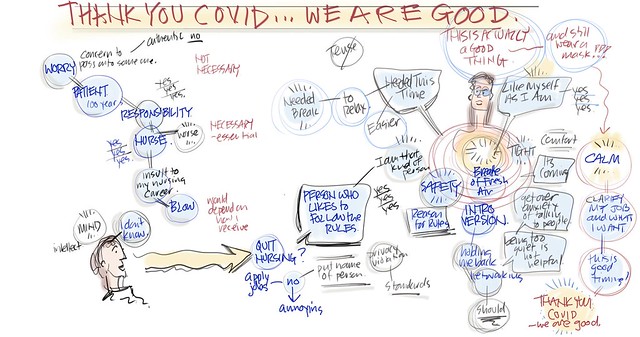 THANK YOU COVID... WE ARE GOOD.
WORRY
Concern to
pass onto someone.
authentic no
NOT
NECESSARY
PATIENT
100 year
yes
yes
yes.
RESPONSIBILITY
NURSE.
yes
yes
yes
worse
NECESSARY
-essential
insult to
my nursing
career.
BLOW
would
depend on
how I
receive
MIND
intellect
I don't
know.
QUIT
NURSING?
apply
jobs
no
annoying
put name
of person
privacy
violation
standards
PERSON WHO
LIKES TO
FOLLOW THE
RULES.
yes
yes
yes
I am that
kind of
person
Tense
Needed
Break
to
relax
Needed This
Time
Easier
THIS IS ACTUALLY
A GOOD
THING
and still
wear a
mask..
Like Myself
AS I AM
yes
yes
yes
TIGHT
Breath
of Fresh
Air
SAFETY
Reason
for Rules
INTRO
VERSION.
Comfort
Its
coming
get over
anxiety
of talking
to people
being too
quiet is
not
helpful
holding
me back
networking
should
CALM
CLARIFY
MY JOB
AND WHAT
I WANT
this is
good
timing!
THANK YOU
COVID
-we are good.